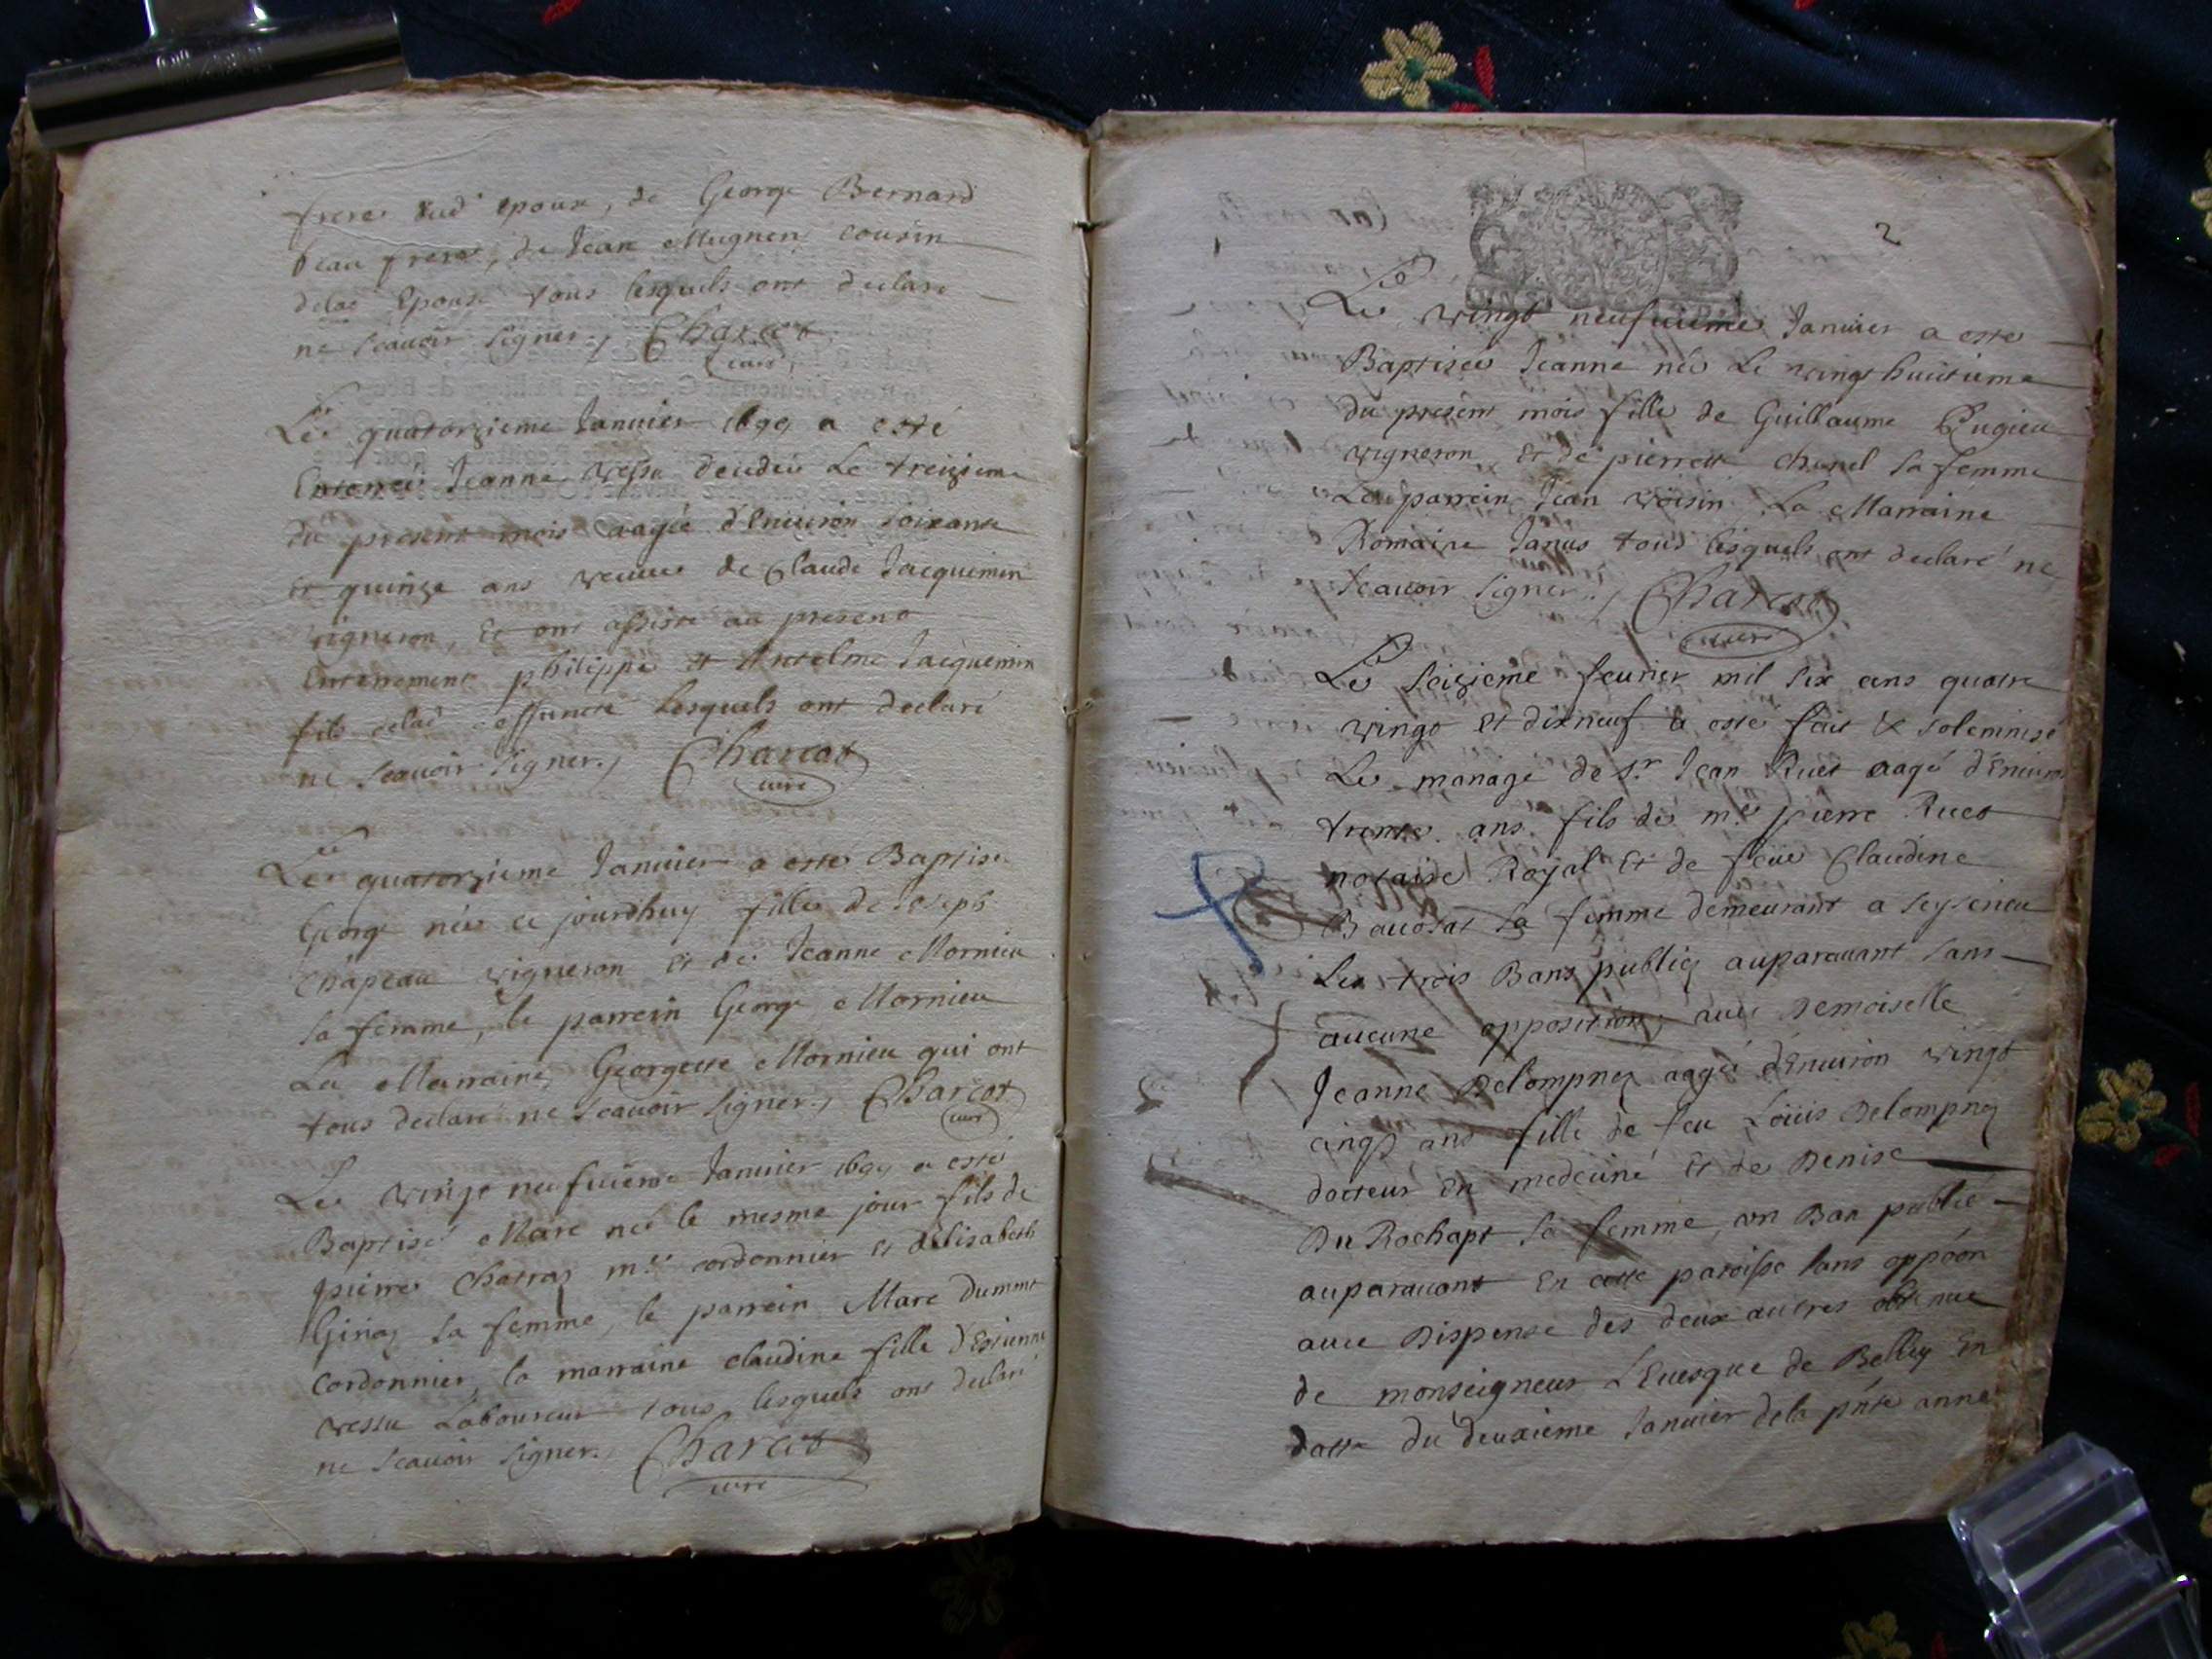 frere dud epoux, de George Bernard
beau frere, de Jean Mugnen cousin
delad Epouse tous lesquels ont declare
ne scauoir signer, Charcot
curé
Le quatorzieme Januier 1699 a esté
Enterreé Jeanne vessu decedeé Le treizieme
du present mois aageé d'Enuiron soixante
Et quinze ans veuue de Claude Jacquemin
vigneron, Et ont assisté au present
Enterrement philippe et Antelme Jacquemin
fils delad deffuncte Lesquels ont declaré
ne scauoir signer, Charcot
curé
Le quatorzieme Januier a esté Baptisé
George née ce jourdhuy fille de Joseph
Chapeau vigneron Et de Jeanne Mornieu
sa femme, le parrein George Mornieu
La Marraine, Georgette Mornieu qui ont
tous declaré ne scauoir signer, Charcot
curé
Le vingt neufuieme Januier 1699 a esté
Baptisé Marc né le mesme jour fils de
pierre Chatraz mre cordonnier Et d'Elisabeth
sa femme, le parrein Marc
cordonnier, la marraine claudine fille d'Estienne
vessu Laboureur tous lesquels ont declaré
ne scauoir signer, Charcot
curé
2
Le vingt neufuieme Januier a esté
Baptisée Jeanne née Le vingt huitieme
du present mois fille de Guillaume Pugieu
vigneron, Et de pierrette sa femme
Le parrein Jean voisin La Marraine
Romaine Janus tous lesquels ont declaré ne
scauoir signer, Charcot
curé
Le seizieme feurier mil six cens quatre
vingt et dixneuf a esté fait & solemnisé
Le mariage de sr Jean Ruet aagé d'Enuiron
trente ans fils de me pierre Ruet
notaire Royal Et de feüe Claudine
sa femme demeurant a seyserieu
Les trois Bans publiez auparauant sans
aucune opposition, auec Demoiselle
Jeanne Delompnez aageé d'Enuiron vingt
cinq ans fille de feu Loüis Delompnez
docteur En medecine Et de Denise
Du Rochapt sa femme, vn Ban publié
auparauant En cette paroisse sans oppôon
auec Dispense des deux autres obtenue
de monseigneur L'Euesque de Belley En
datte du deuxieme Januier dela pñte anne